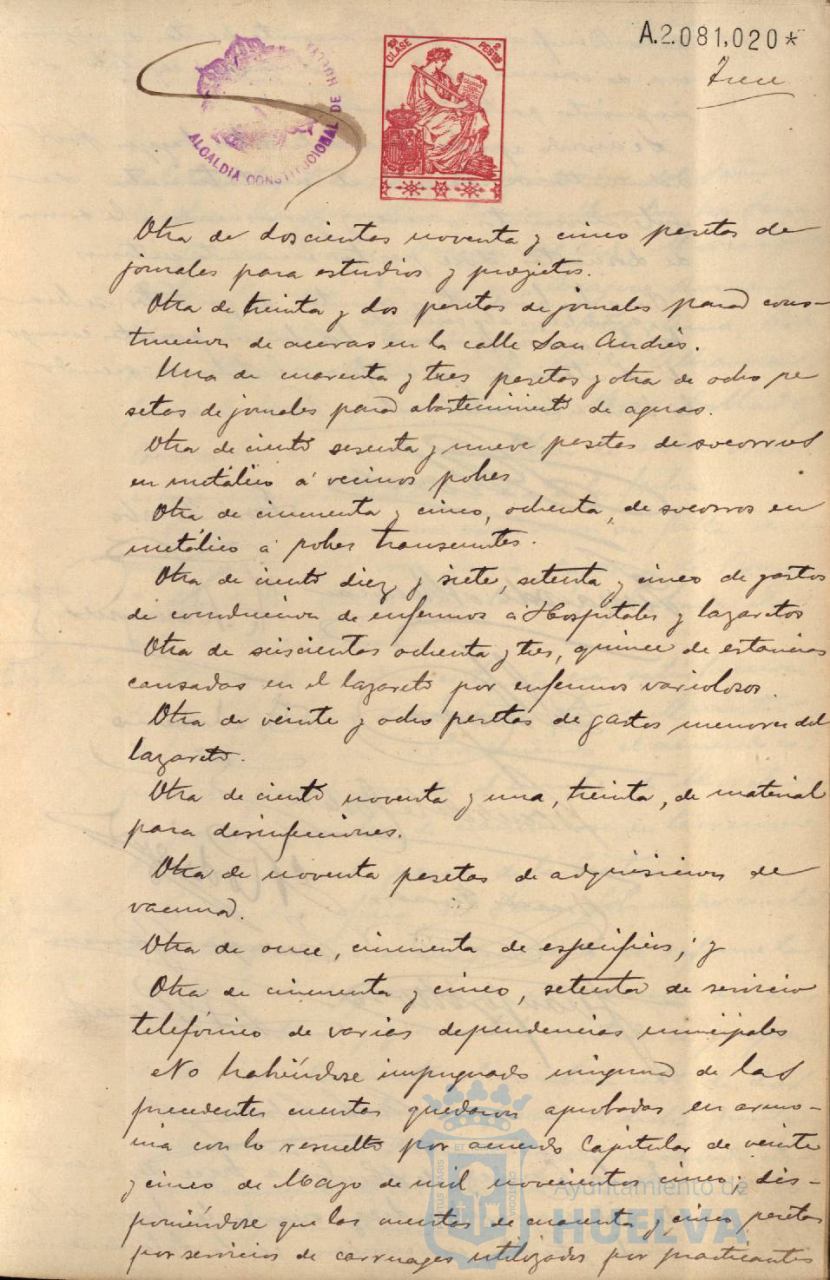 A.2.081,020*
Trece
10ª CLASE
2 PESETAS
ALCALDÍA CONSTITUCIONAL DE HUELVA
Otra de doscientas noventa y cinco pesetas de
jornales para estudios y proyectos.
Otra de treinta y dos pesetas de jornales para cons-
trucción de aceras en la calle San Andrés.
Una de cuarenta y tres pesetas y otra de ocho pe
setas de jornales para abastecimiento de aguas.
Otra de ciento sesenta y nueve pesetas de socorros
en metálico á vecinos pobres
Otra de cincuenta y cinco, ochenta, de socorros en
metálico á pobres transeuntes.
Otra de ciento diez y siete, setenta y cinco de gastos
de conducción de enfermos á Hospitales y lazaretos
Otra de seiscientas ochenta y tres, quince de estancias
causadas en el lazareto por enfermos variolosos.
Otra de veinte y ocho pesetas de gastos menores del
lazareto.
Otra de ciento noventa y una, treinta, de material
para desinfecciones.
Otra de noventa pesetas de adquisicion de
vacuna.
Otra de once, cincuenta de especificos; y
Otra de cincuenta y cinco, setenta de servicio
telefónico de varias dependencias municipales
No habiéndose impugnado ninguna de las
precedentes cuentas quedaron aprobadas en armo-
nia con lo resuelto por acuerdo Capitular de veinte
y cinco de Mayo de mil novecientos cinco; dis-
poniéndose que las cuentas de cuarenta y cinco pesetas
por servicios de carruages utilizados por practicantes
Ayuntamiento de
HUELVA